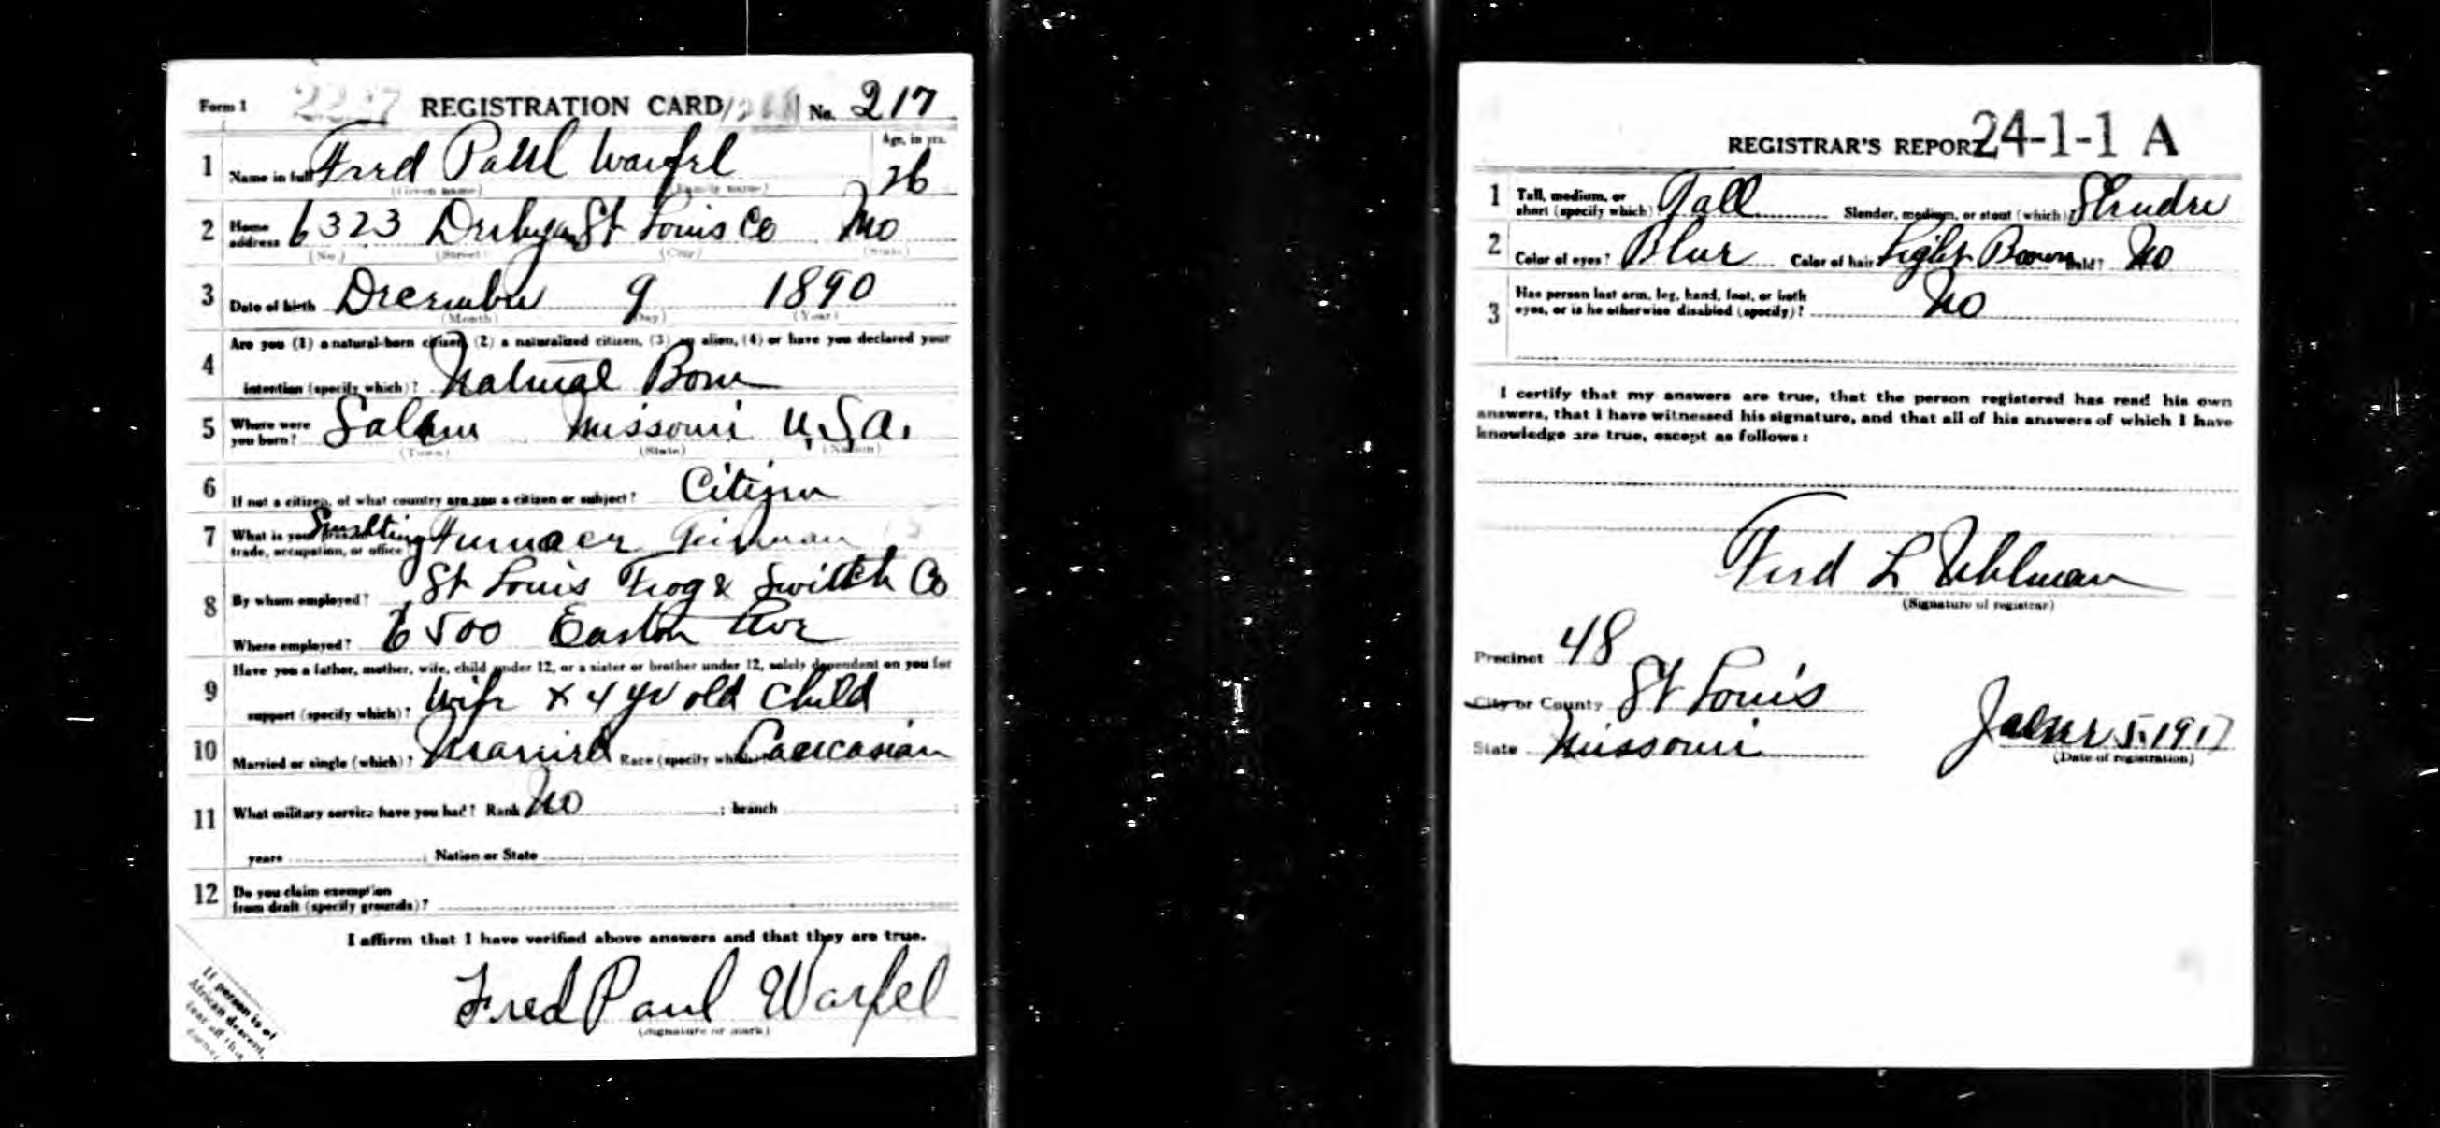 Form 1 2227 REGISTRATION CARD No. 217
Age, in yrs.
1 Name in full Fred Paul Warfel 26
(Given name) (Family name)
2 Home address 6323 Derby an St Louis Co Mo
(No.) (Street) (City) (State)
3 Date of birth December 9 1890
(Month) (Day) (Year)
4 Are you (1) a natural-born citizen, (2) a naturalized citizen, (3) an alien, (4) or have you declared your
intention (specify which)? Natural Born
5 Where were you born? Salem Missouri U.S.A.
(Town) (State) (Nation)
6 If not a citizen, of what country are you a citizen or subject? Citizen
7 What is your present trade, occupation, or office Smelting Furnace
8 By whom employed? St Louis Frog & Switch Co
Where employed? 6500 Easton Ave
9 Have you a father, mother, wife, child under 12, or a sister or brother under 12, solely dependent on you for
support (specify which)? Wife + 4 yr old child
10 Married or single (which)? Married Race (specify which)? Caucasian
11 What military service have you had? Rank No ; branch
years ; Nation or State
12 Do you claim exemption
from draft (specify grounds)?
I affirm that I have verified above answers and that they are true.
Fred Paul Warfel
(Signature or mark)
If person is of
African descent,
tear off this
corner.
REGISTRAR'S REPORT 24-1-1 A
1 Tall, medium, or short (specify which)? Tall Slender, medium, or stout (which)? Slender
2 Color of eyes? Blue Color of hair Light Brown Bald? No
3 Has person lost arm, leg, hand, foot, or both
eyes, or is he otherwise disabled (specify)? No
I certify that my answers are true, that the person registered has read his own
answers, that I have witnessed his signature, and that all of his answers of which I have
knowledge are true, except as follows:
Fred L Uhlman
(Signature of registrar)
Precinct 48
City or County St Louis
State Missouri June 5-1917
(Date of registration)